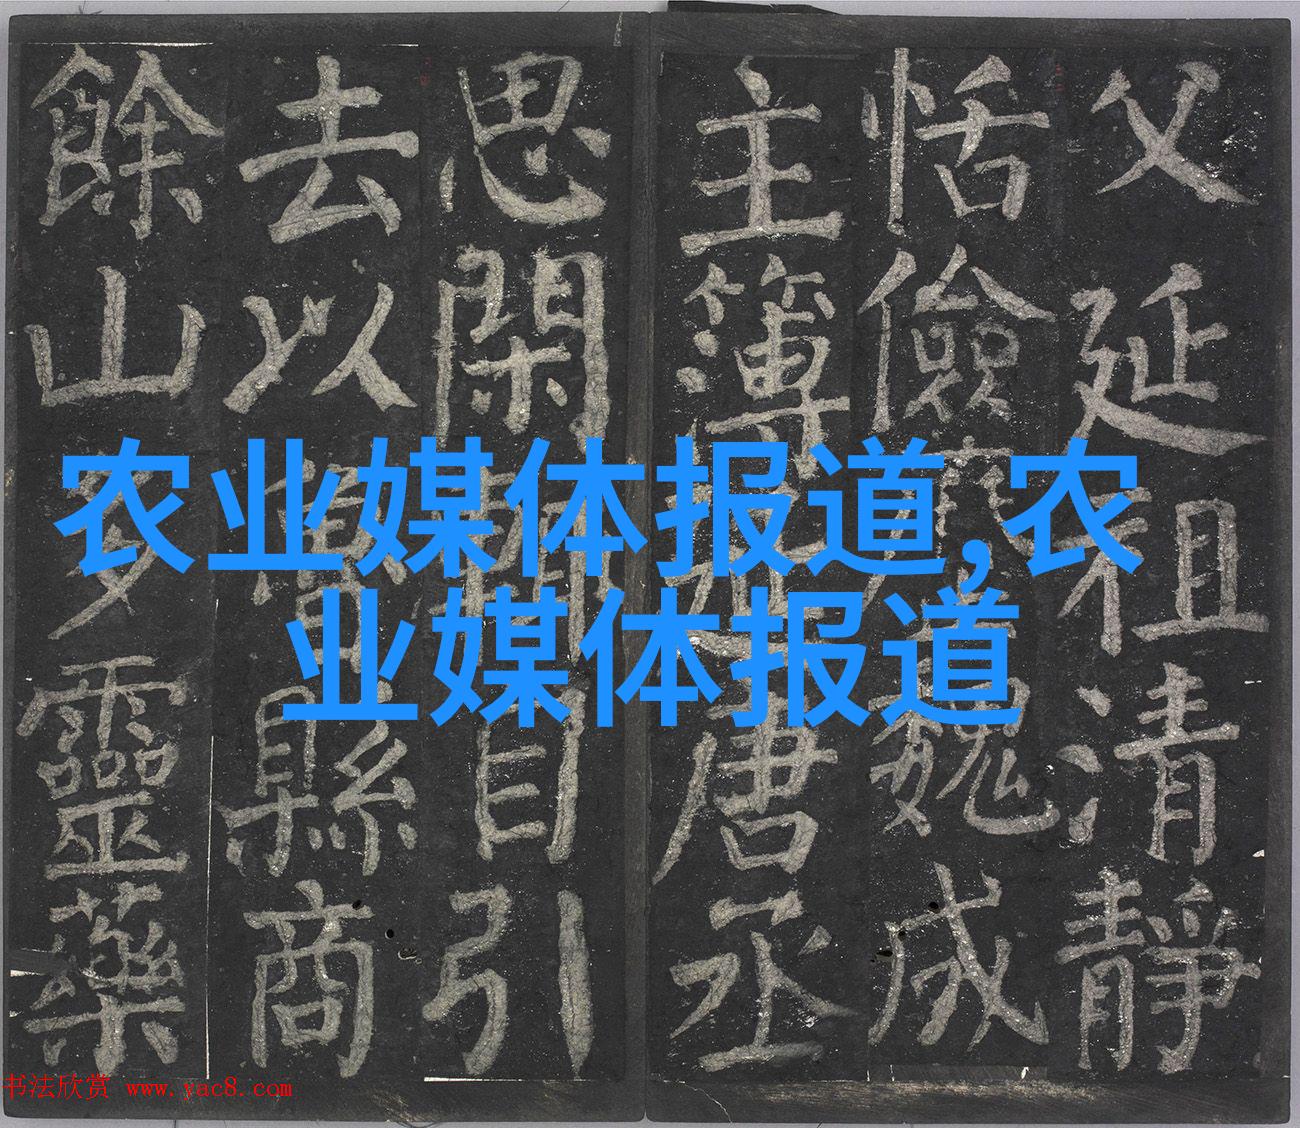 父延祖清靜
恬儉魏成
主簿唐丞
思閑目引
去以縣商
餘山多靈藥
农业媒体报道,农
业媒体报道
书法欣赏 www.yac8.com